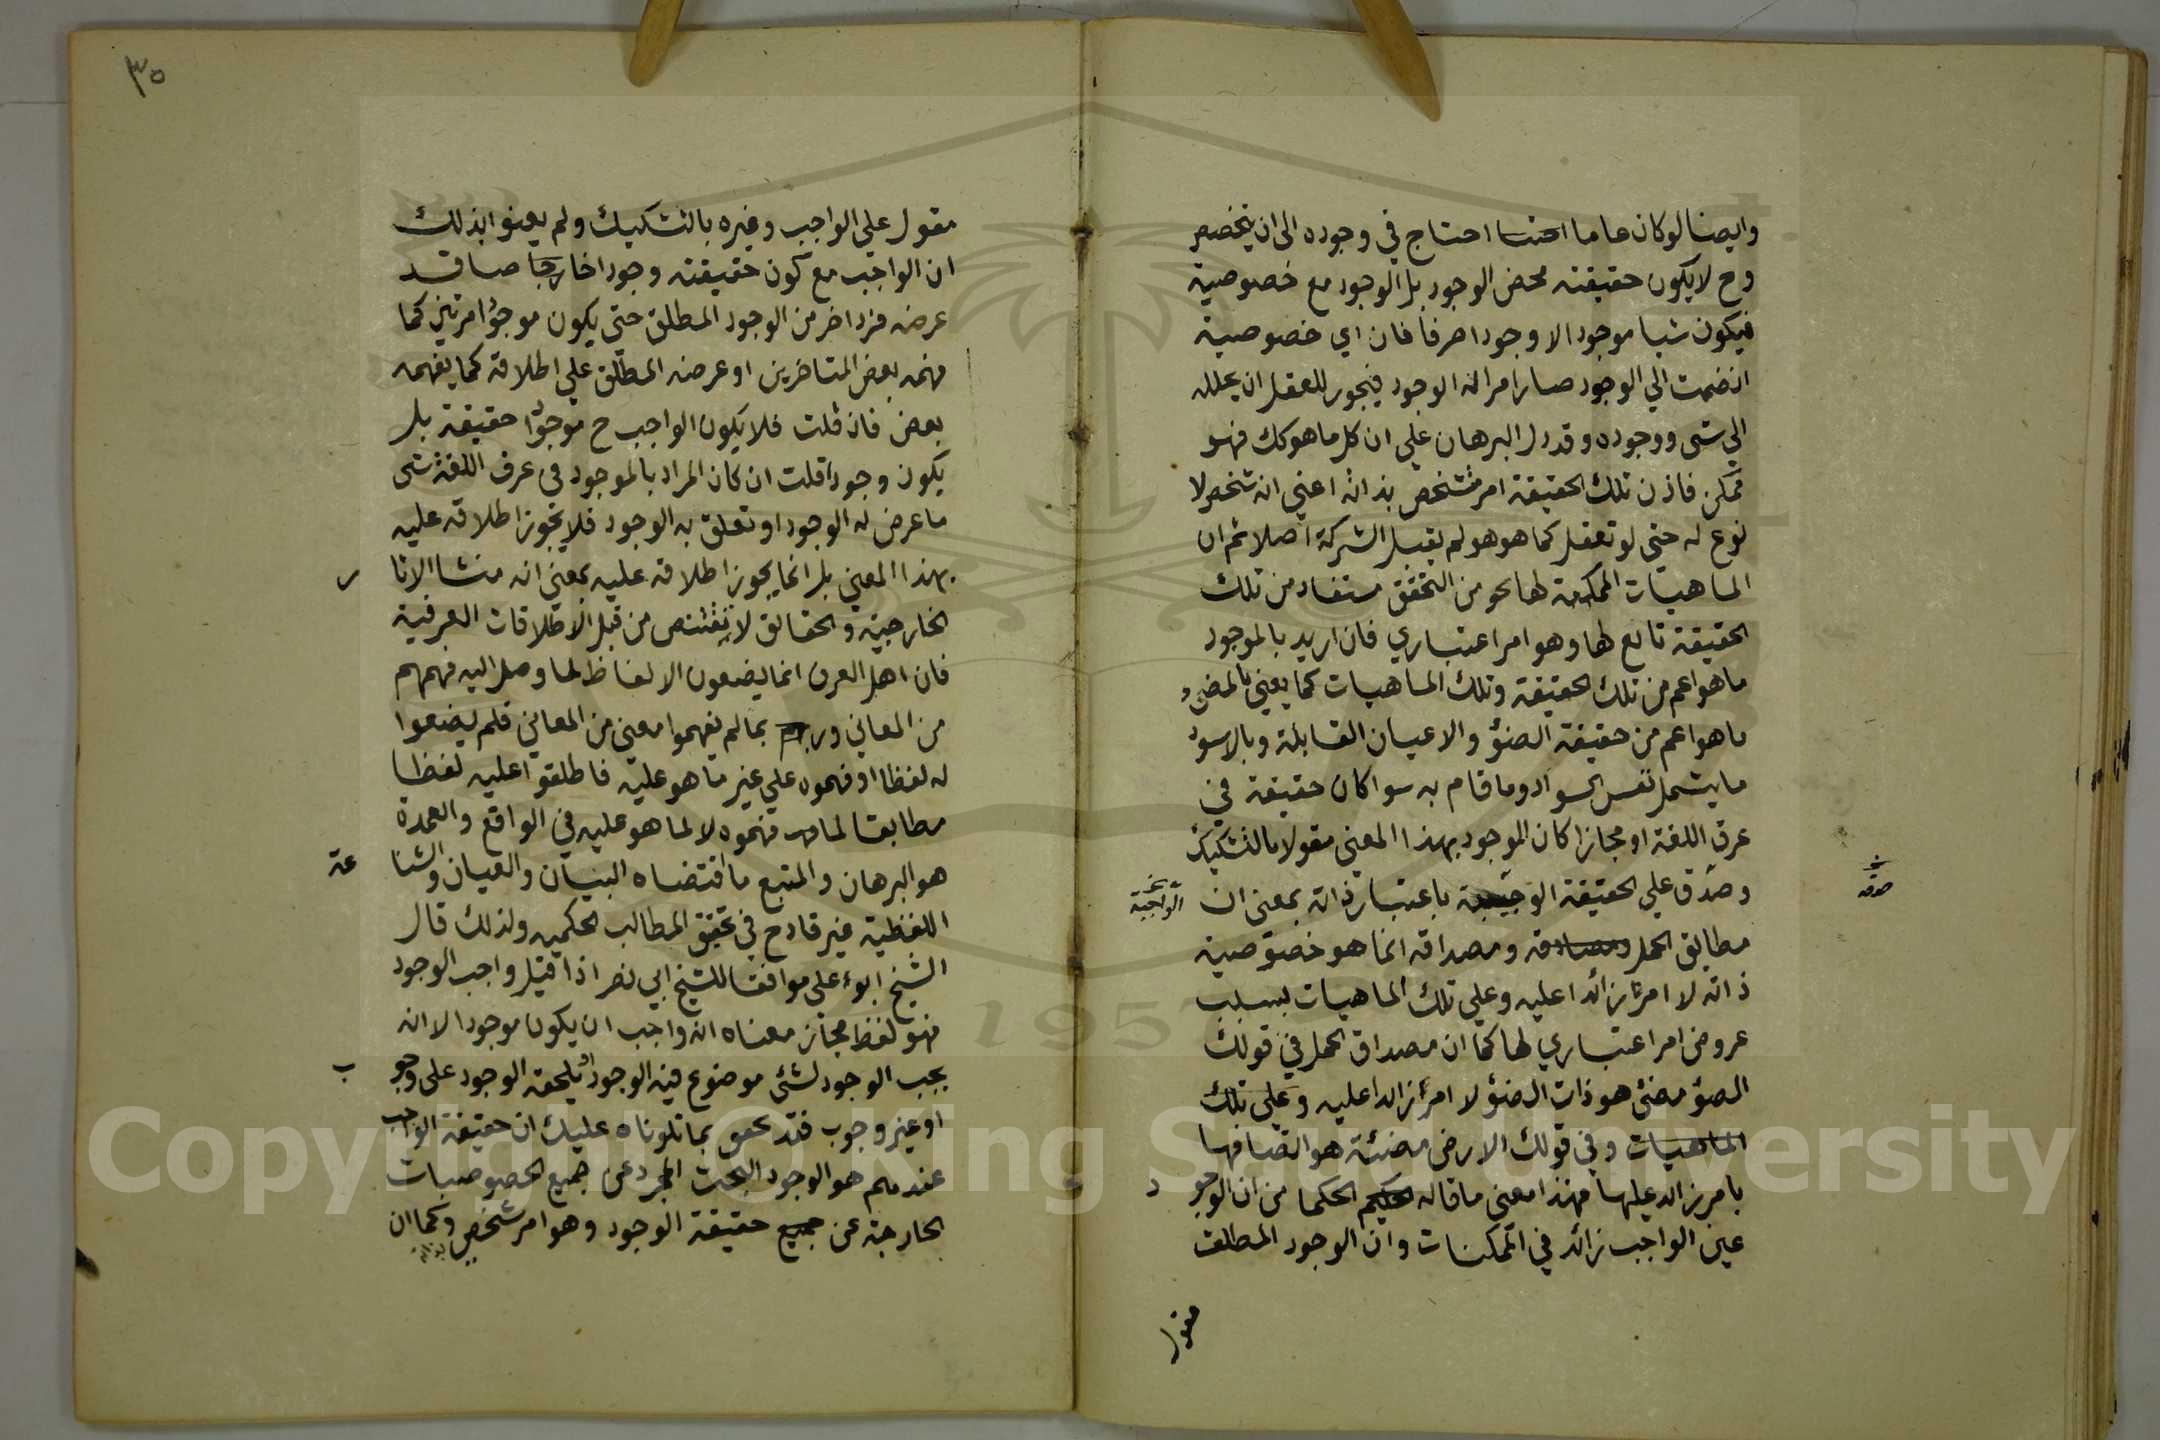 وايضا لو كان عاما احتاج في وجوده الى ان يتخصص
وح لا يكون حقيقته محض الوجود بل الوجود مع خصوصية
فيكون شيا موجودا لا وجودا صرفا فان اي خصوصية
انضمت الي الوجود صار امرا له الوجود فيجوز للعقل ان يحلله
الي شي ووجوده وقد دل البرهان علي ان كل ما هو كك فهو
ممكن فاذن تلك الحقيقة امر متشخص بذاته اعني انه شخص لا
نوع له حتي لو تعقل كما هو هو لم يقبل الشركة اصلا ثم ان
الماهيات الممكنة لها نحو من التحقق مستفاد من تلك
الحقيقة تابع لها وهو امر اعتباري فان اريد بالموجود
ما هو اعم من تلك الحقيقة وتلك الماهيات كما يعني بالمضيء
ما هو اعم من حقيقة الضوء والاعيان القابلة وبالاسود
ما يشمل نفس السواد وما قام به سوا كان حقيقة في
عرف اللغة او مجازا كان الموجود بهذا المعني مقولا بالتشكيك
وصدق علي الحقيقة باعتبار ذاته بمعني ان
الواجبة
صدقه
مطابق الحمل ومصداقه انما هو خصوصية
ذاته لا امر زائدا عليه وعلي تلك الماهيات بسبب
عروض امر اعتباري لها كما ان مصداق الحمل في قولك
الضوء مضئ هو ذات الضوء لا امر زائدا عليه وعلي تلك
الماهيات وفي قولك الارض مضئة هو اتصافها
بامر زائد عليها فهذا معني ما قاله الحكما من ان الوجود
عين الواجب زائد في الممكنات وان الوجود المطلق
مقول
٣٥
مقول علي الواجب وغيره بالتشكيك ولم يعنوا بذلك
ان الواجب مع كون حقيقته وجودا خارجا صاقد
عرضه فرد اخر من الوجود المطلق حتي يكون موجودا مرتين كما
فهمه بعض المتاخرين او عرضه المطلق علي اطلاقه كما يفهمه
بعض فان قلت فلا يكون الواجب ح موجودا حقيقة بل
يكون وجودا قلت ان كان المراد بالموجود في عرف اللغة شي
ما عرض له الوجود او تعلق به الوجود فلا يجوز اطلاقه عليه
بهذا المعني بل انما يجوز اطلاقه عليه بمعني انه منشا الاثار
الخارجية والحقائق لا تقتنص من قبل الاطلاقات العرفية
فان اهل العرف انما يضعون الالفاظ لما وصل اليه فهمهم
من المعاني وربما لم يفهموا معني من المعاني فلم يضعوا
له لفظا او فهموه علي غير ما هو عليه فاطلقوا عليه لفظا
مطابقا لما فهموه لا لما هو عليه في الواقع والعمدة
هو البرهان والمتبع ما اقتضاه البنيان والعيان والشناعة
اللفظية غير قادح في تحقيق المطالب الحكميه ولذلك قال
الشيخ ابو علي موافقا للشيخ ابي نصر اذا قيل واجب الوجود
فهو لفظ مجاز معناه انه واجب ان يكون موجودا لا انه
يجب الوجود لشئ موضوع فيه الوجود او يلحقه الوجود علي وجوب
او غير وجوب فقد تحقق بما تلوناه عليك ان حقيقة الواجب
عندهم هو الوجود البحت المجرد عن جميع الخصوصيات
الخارجة عن جميع حقيقة الوجود وهو امر شخص وكما ان
Copyright © King Saud University
1957